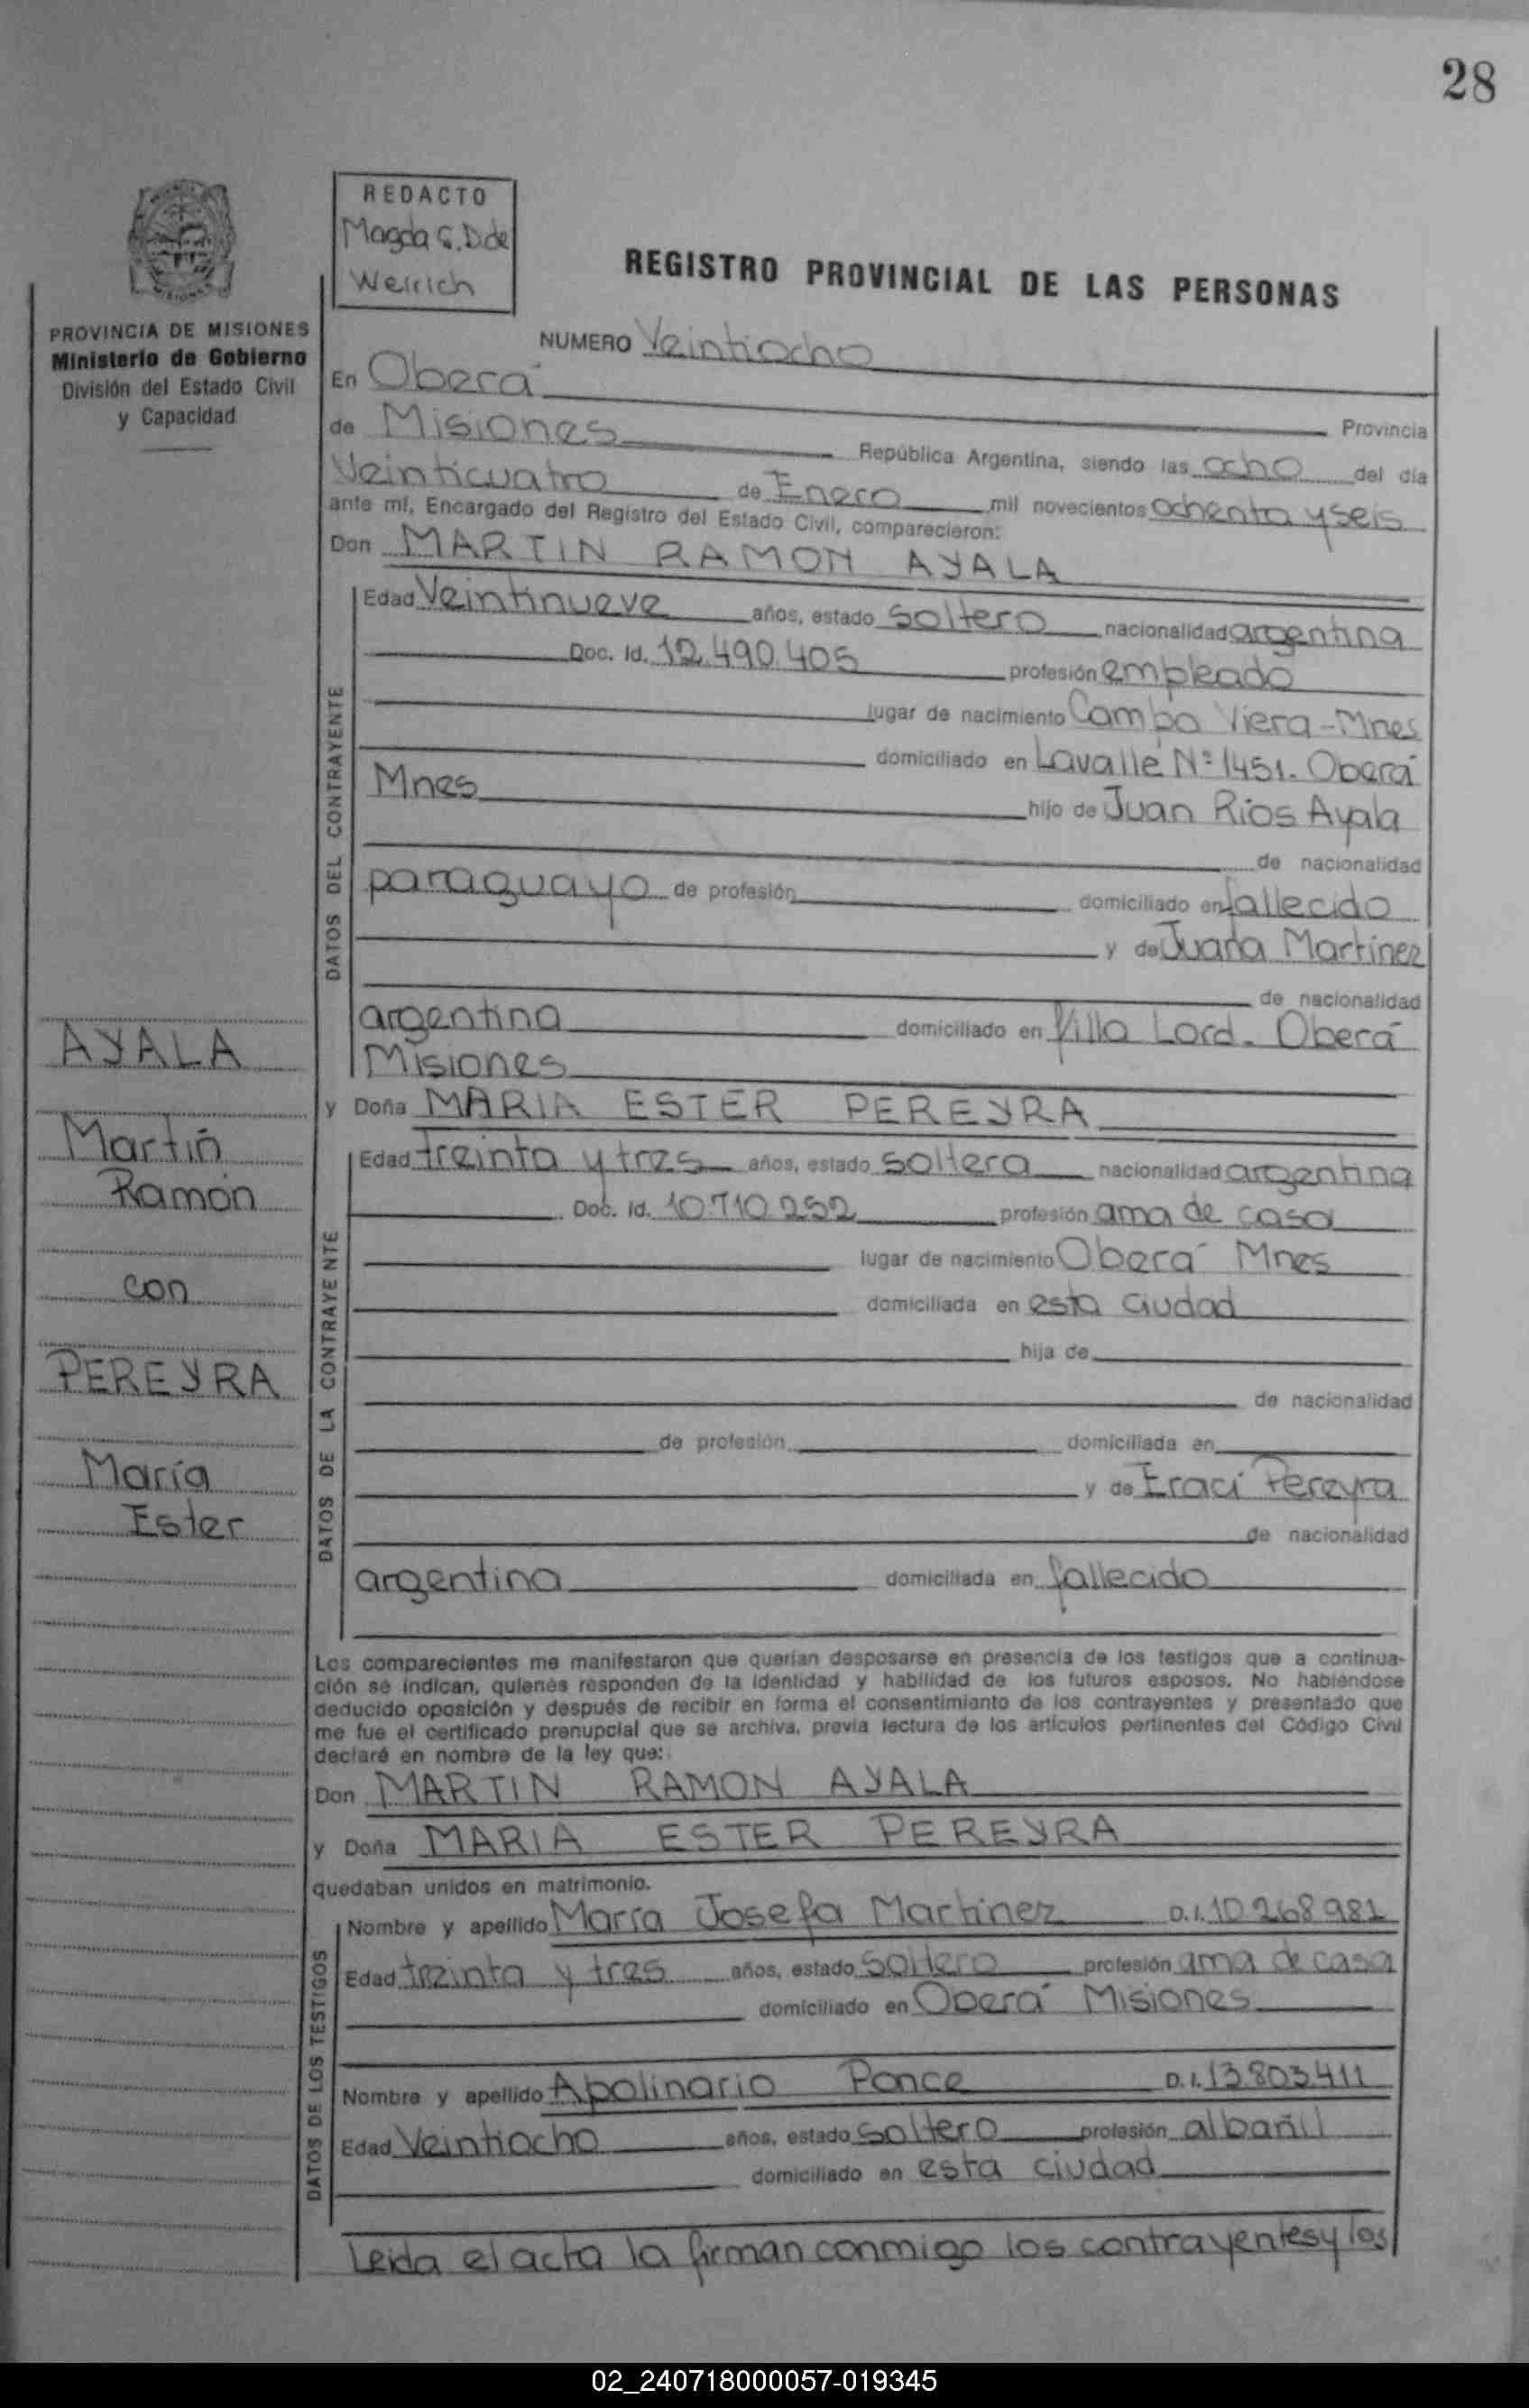 28
REDACTO
Magda G. D. de
Weirich
REGISTRO PROVINCIAL DE LAS PERSONAS
PROVINCIA DE MISIONES
Ministerio de Gobierno
División del Estado Civil
y Capacidad
NUMERO Veintiocho
En Oberá Provincia
de Misiones República Argentina, siendo las ocho del día
Veinticuatro de Enero mil novecientos ochenta y seis
ante mí, Encargado del Registro del Estado Civil, comparecieron:
Don MARTIN RAMON AYALA
DATOS DEL CONTRAYENTE
Edad Veintinueve años, estado soltero nacionalidad argentina
Doc. Id. 12.490.405 profesión empleado
lugar de nacimiento Campo Viera - Mnes
domiciliado en Lavalle Nº 1451. Oberá
Mnes hijo de Juan Rios Ayala
de nacionalidad
paraguayo de profesión domiciliado en fallecido
y de Juana Martinez
de nacionalidad
argentina domiciliado en Villa Lord - Oberá
Misiones
AYALA
Martín
Ramón
con
PEREYRA
María
Ester
y Doña MARIA ESTER PEREYRA
DATOS DE LA CONTRAYENTE
Edad treinta y tres años, estado soltera nacionalidad argentina
Doc. Id. 10.710.252 profesión ama de casa
lugar de nacimiento Oberá Mnes
domiciliada en esta ciudad
hija de
de nacionalidad
de profesión domiciliada en
y de Eraci Pereyra
de nacionalidad
argentina domiciliada en fallecido
Los comparecientes me manifestaron que querían desposarse en presencia de los testigos que a continua-
ción se indican, quienes responden de la identidad y habilidad de los futuros esposos. No habiéndose
deducido oposición y después de recibir en forma el consentimiento de los contrayentes y presentado que
me fue el certificado prenupcial que se archiva, previa lectura de los artículos pertinentes del Código Civil
declaré en nombre de la ley que:
Don MARTIN RAMON AYALA
y Doña MARIA ESTER PEREYRA
quedaban unidos en matrimonio.
DATOS DE LOS TESTIGOS
Nombre y apellido María Josefa Martinez D.I. 10 268 981
Edad treinta y tres años, estado soltero profesión ama de casa
domiciliado en Oberá Misiones
Nombre y apellido Apolinario Ponce D.I. 13.803.411
Edad Veintiocho años, estado soltero profesión albañil
domiciliado en esta ciudad
Leida el acta la firman conmigo los contrayentes y los
02_240718000057-019345